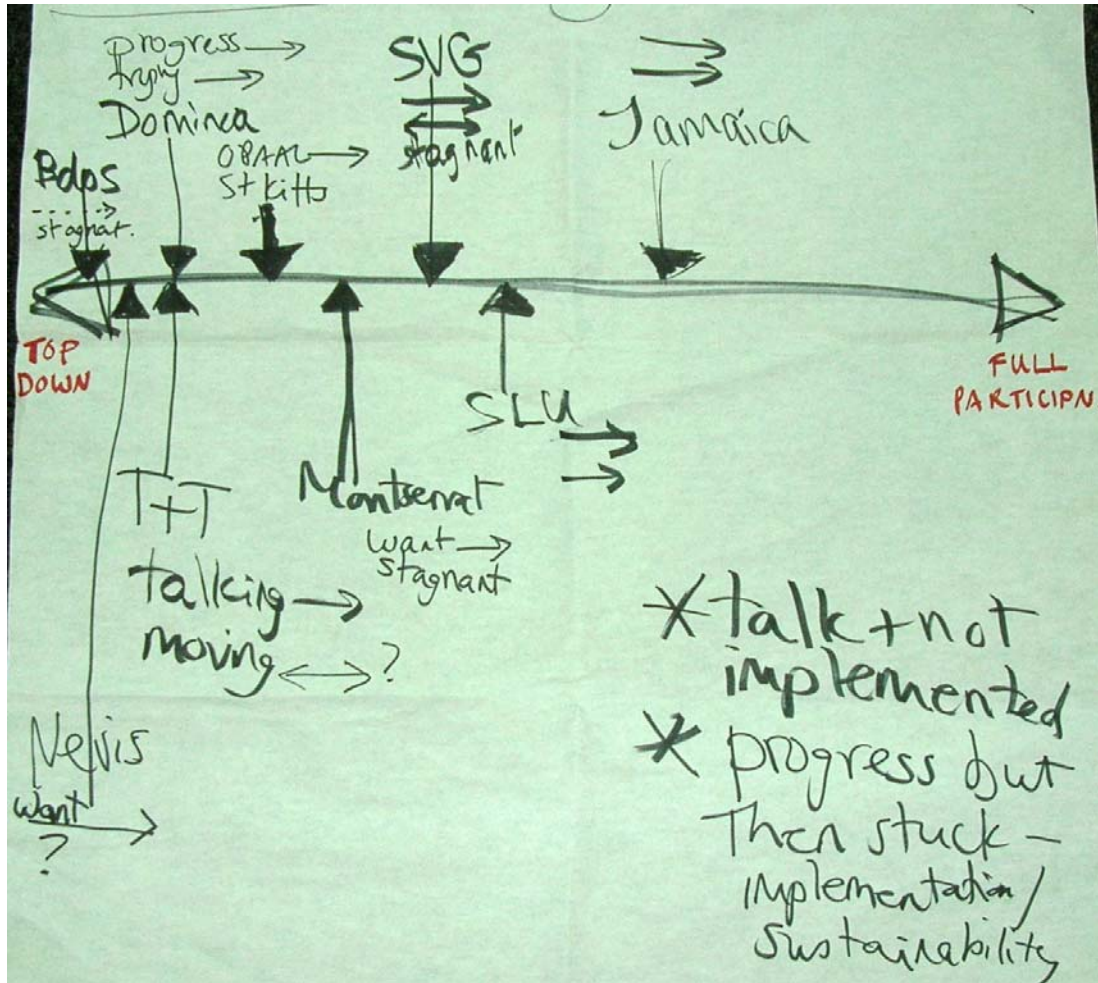 progress →
trying →
Dominca
SVG
stagnant
Jamaica
OPAAL →
St Kitts
Bdos
stagnat.
TOP
DOWN
FULL
PARTICIPN
SLU
T+T
talking →
moving ↔ ?
Montserrat
want →
stagnant
Nevis
want
?
* talk + not
implemented
* progress but
then stuck –
implementation/
sustainability